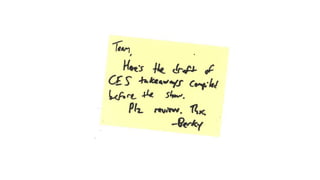 Team,
Here's the draft of
CES takeaways compiled
before the show.
Plz review. Thx.
-Becky